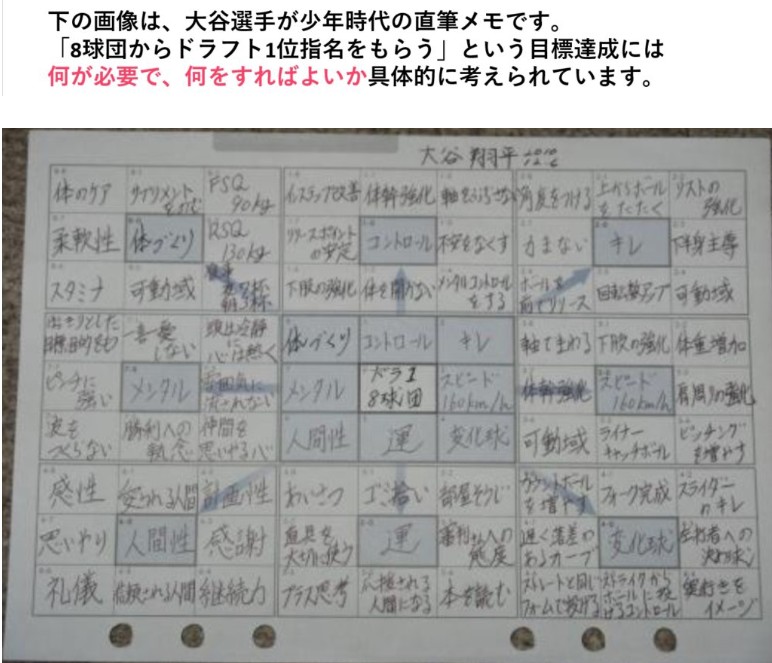 下の画像は、大谷選手が少年時代の直筆メモです。
「8球団からドラフト1位指名をもらう」という目標達成には
何が必要で、何をすればよいか具体的に考えられています。
大谷 翔平
体のケア
サプリメント
をのむ
FSQ
90kg
柔軟性
体づくり
RSQ
130kg
スタミナ
可動域
食事
夜7杯
朝3杯
インステップ改善
体幹強化
軸をぶらさない
リリースポイント
の安定
コントロール
不安をなくす
下肢の強化
体を開かない
メンタルコントロール
をする
角度をつける
上からボール
をたたく
リストの
強化
力まない
キレ
下半身主導
ボールを
前でリリース
回転数アップ
可動域
はっきりとした
目標、目的をもつ
一喜一憂
しない
頭は冷静に
心は熱く
ピンチに
強い
メンタル
雰囲気に
流されない
波を
つくらない
勝利への
執念
仲間を
思いやる心
体づくり
コントロール
キレ
メンタル
ドラ1
8球団
スピード
160km/h
人間性
運
変化球
軸でまわる
下肢の強化
体重増加
体幹強化
スピード
160km/h
肩周りの強化
可動域
ライナー
キャッチボール
ピッチング
を増やす
感性
愛される人間
計画性
思いやり
人間性
感謝
礼儀
信頼される人間
継続力
あいさつ
ゴミ拾い
部屋そうじ
道具を
大切に使う
運
審判さんへの
態度
プラス思考
応援される
人間になる
本を読む
カウントボール
を増やす
フォーク完成
スライダー
のキレ
遅く落差の
あるカーブ
変化球
左打者への
決め球
ストレートと同じ
フォームで投げる
ストライクから
ボールに投
げるコントロール
奥行きを
イメージ